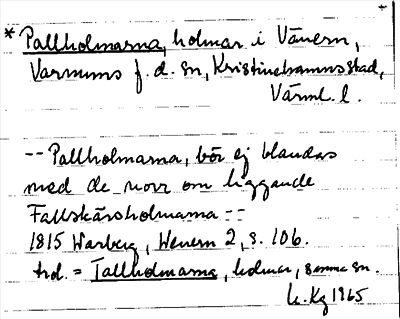 * Pallholmarna, holmar i Vänern,
Varnums f.d. sn, Kristinehamns stad,
Värml. l.
-- Pallholmarna, bör ej blandas
med de norr om liggande
Fallskärsholmarna --
1815 Warberg, Wenern 2, s. 106.
trol. = Tallholmarna, holmar, samma sn.
1965